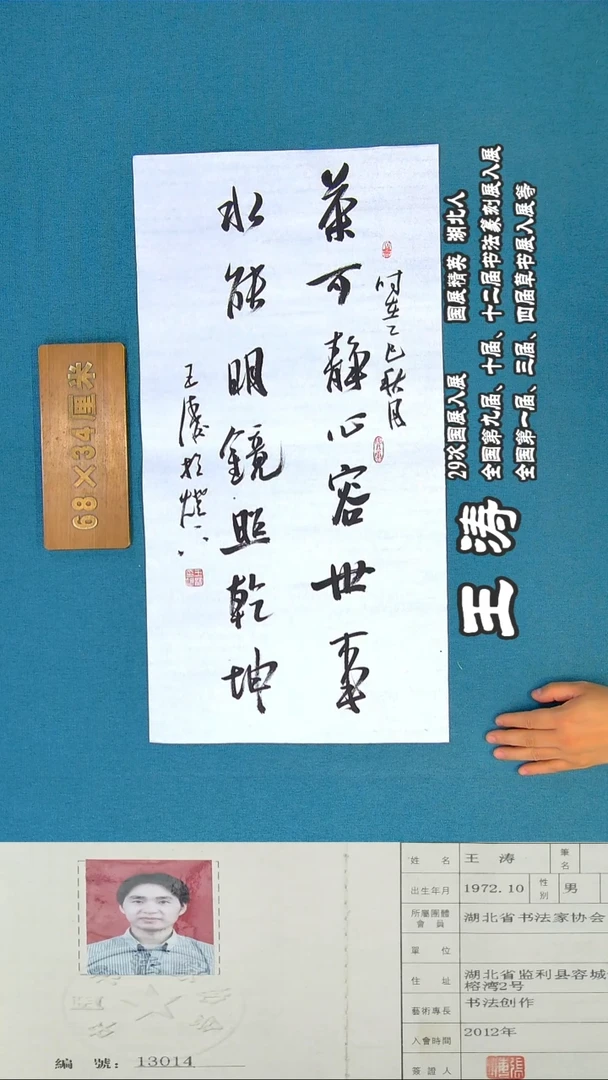 茶可静心容世事
水能明镜照乾坤
时在乙巳秋月
王涛於
68×34厘米
王涛
29次国展入展 国展精英 湖北人
全国第九届、十届、十二届书法篆刻展入展
全国第一届、三届、四届草书展入展等
姓名 王涛 筆名
出生年月 1972.10 性別 男
所屬團體會員 湖北省书法家协会
單位
住址 湖北省监利县容城
榕湾2号
藝術專長 书法创作
入會時間 2012年
簽證人
編號：13014